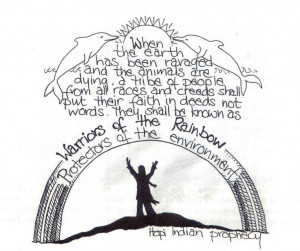 When
the earth
has been ravaged
and the animals are
dying, a tribe of people
from all races and creeds shall
put their faith in deeds not
words. They shall be known as
Warriors of the Rainbow
Protectors of the environment
Hopi Indian prophecy